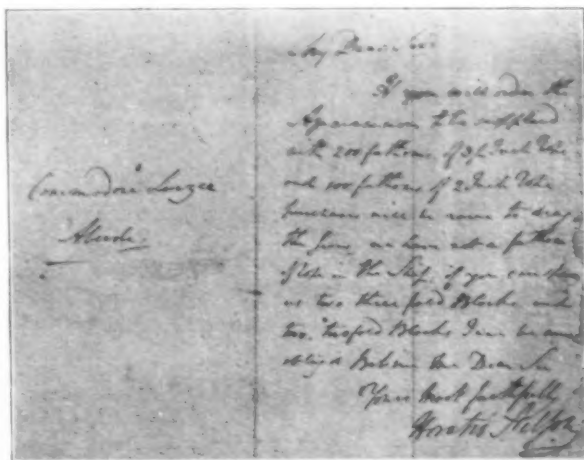 Commodore Linzee
Alcide
My Dear Sir
If you will order the
Agamemnon to be supplied
with 200 fathoms of 3½ Inch Rope
and 100 fathoms of 2 Inch Rope
will be to drag
the Guns, we have not a fathom
of in the Ship, if you can spare
us two three fold Blocks and
two, twofold Blocks I
obliged Believe me Dear Sir
Yours Most faithfully
Horatio Nelson